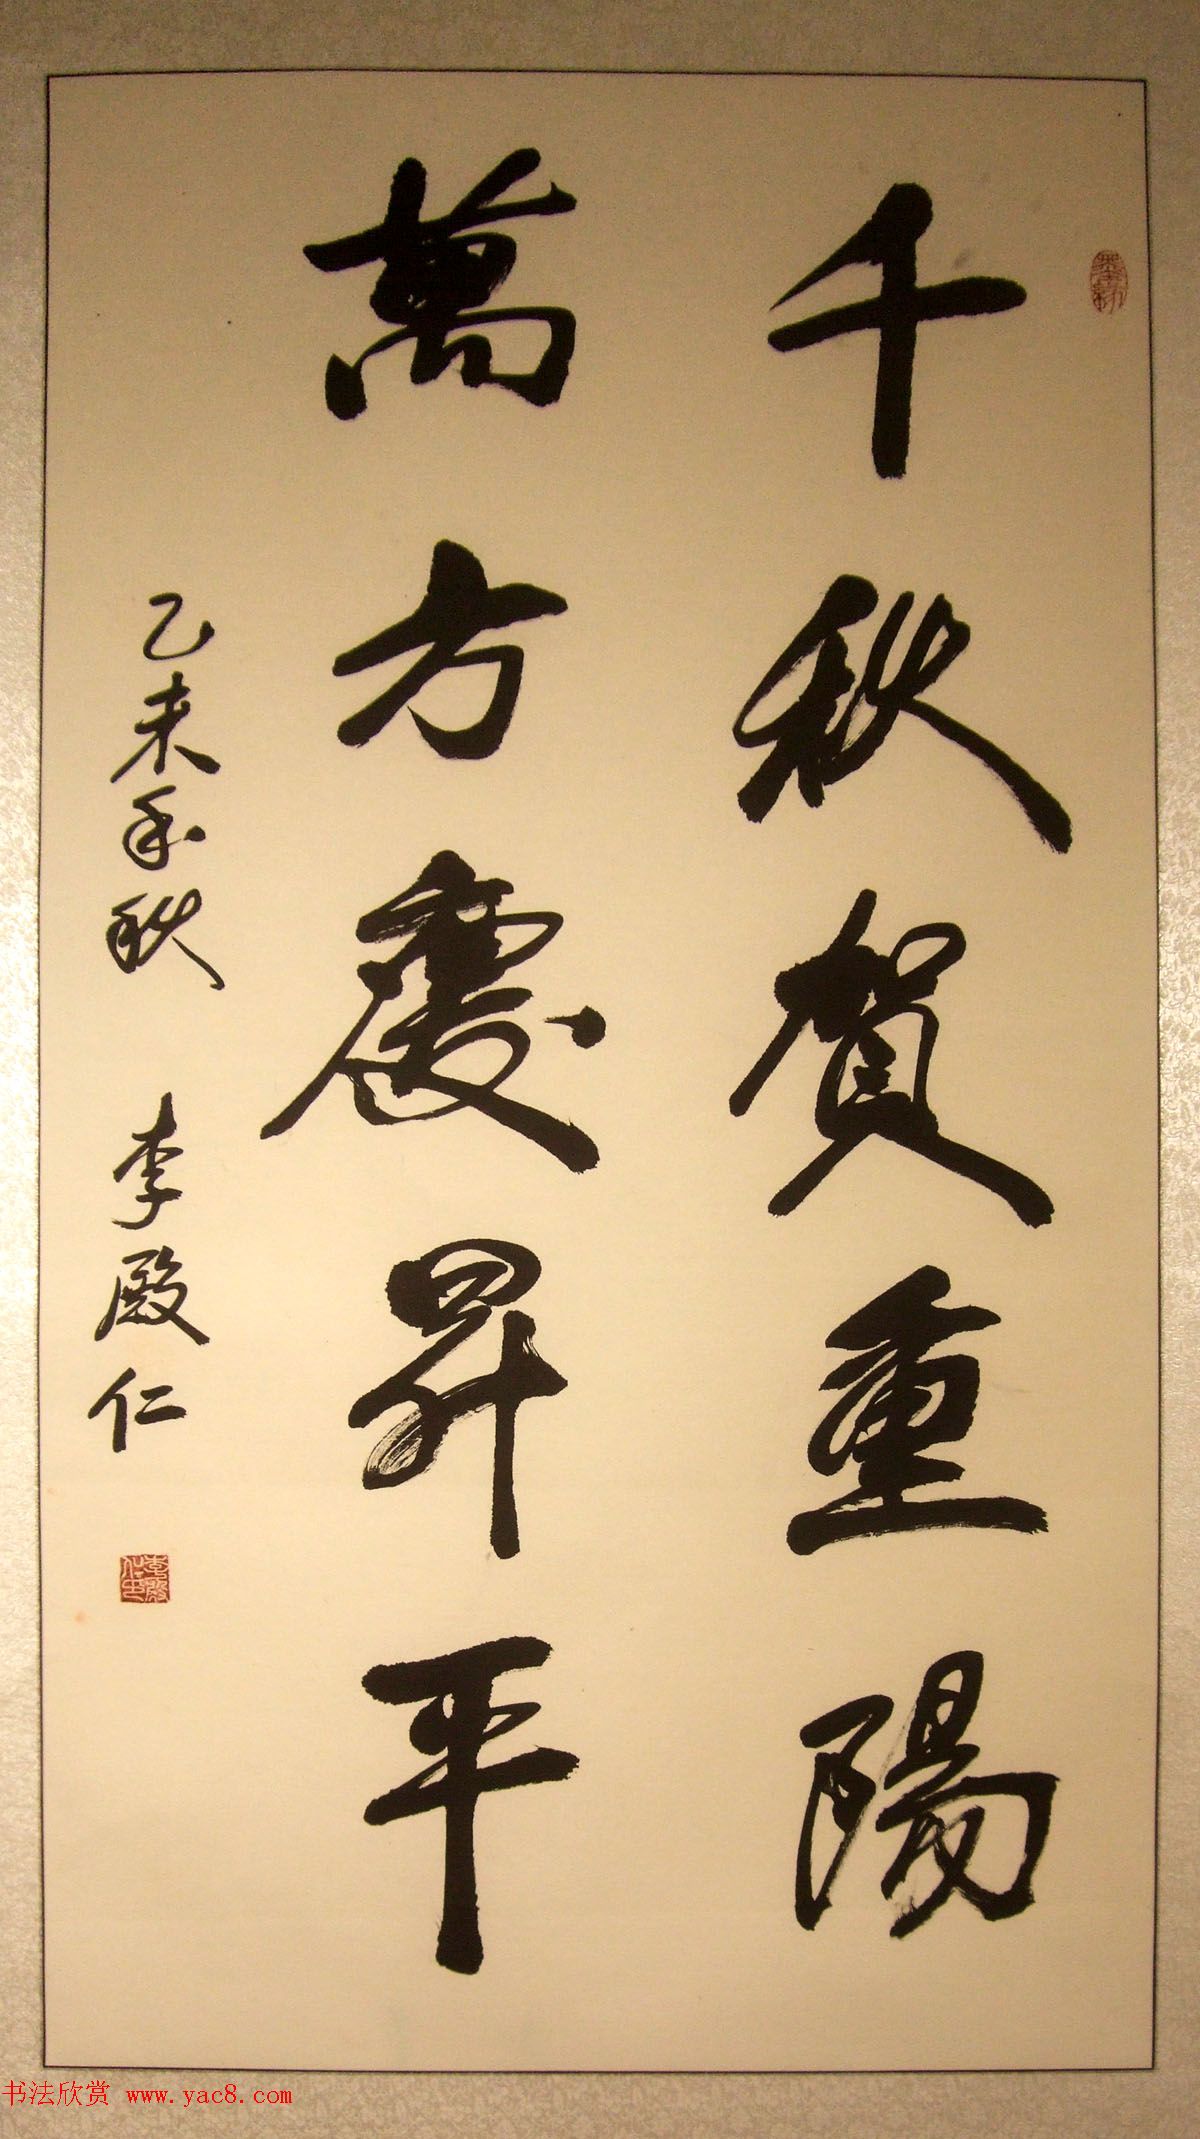 千秋賀重陽
萬方慶昇平
乙未年秋 李殿仁
李殿仁印
书法欣赏 www.yac8.com